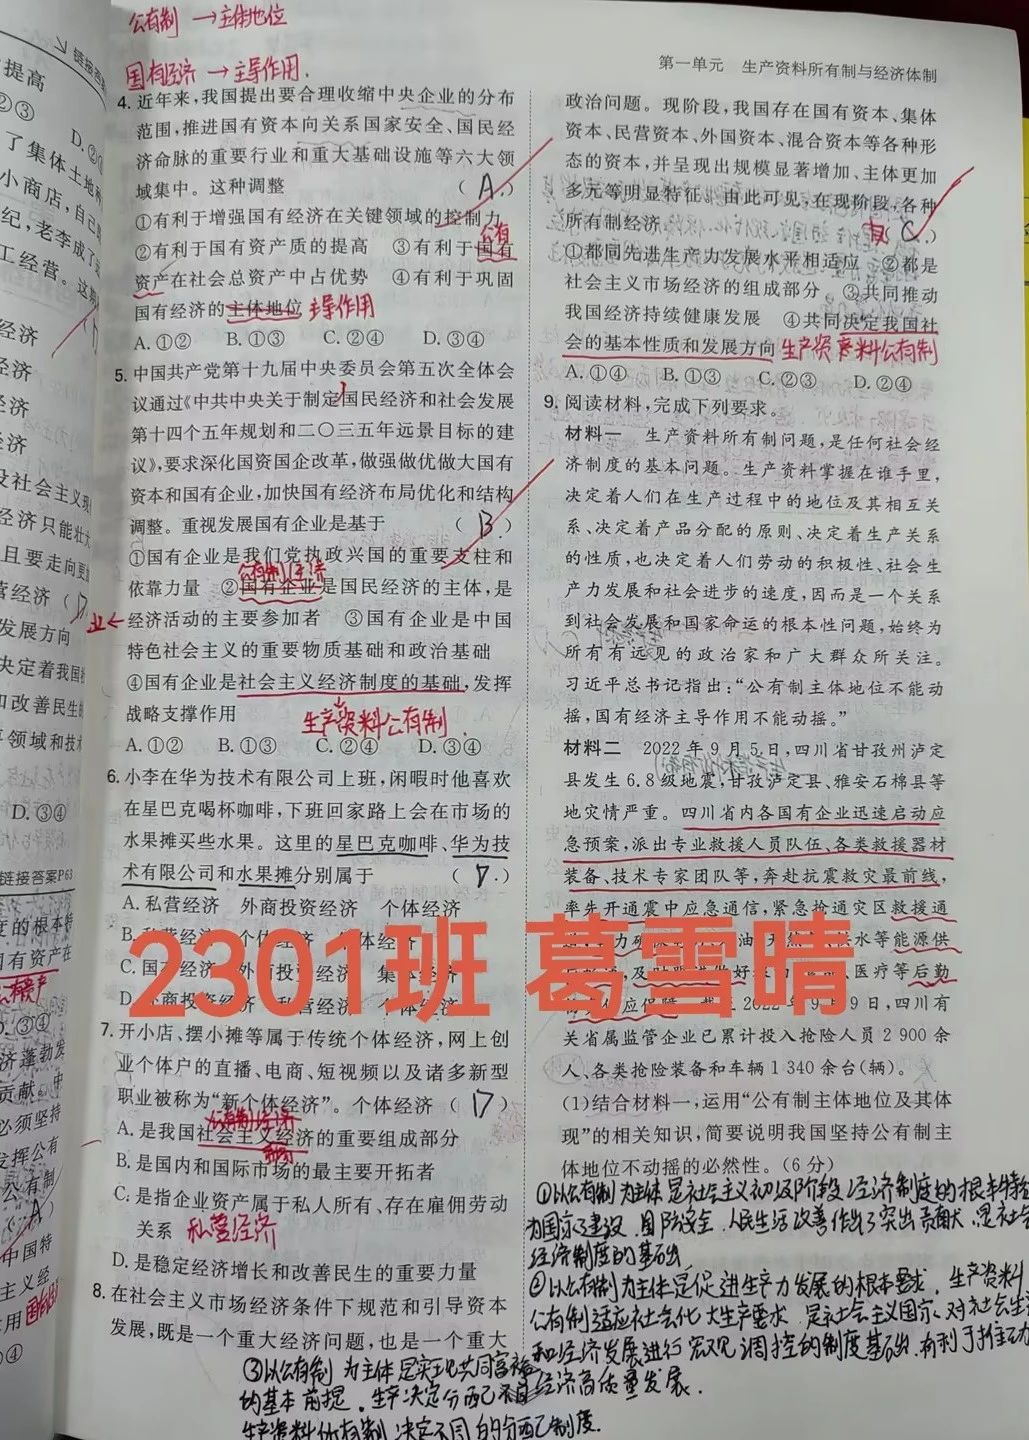 公有制 →主体地位
国有经济 →主导作用.
第一单元 生产资料所有制与经济体制
链接答
提高
②③ D.②
了集体土地
小商店，自己
纪，老李成了
工经营。这
经济
经济
经济
经济
没社会主义现
经济只能壮大
且要走向更
营经济（D
发展方向
决定着我国
和改善民生的
领域和技术
D.③④
链接答案P63
度的根本特
国有资产在
D.③④
济蓬勃发
贡献。中
必须坚持
发挥公有
公有制
A
中国特
主义经
作用 国有经
④
4. 近年来，我国提出要合理收缩中央企业的分布
范围，推进国有资本向关系国家安全、国民经
济命脉的重要行业和重大基础设施等六大领
域集中。这种调整 （ A. ）
①有利于增强国有经济在关键领域的控制力
②有利于国有资产质的提高 ③有利于国有
公有
资产在社会总资产中占优势 ④有利于巩固
国有经济的主体地位 主导作用
A.①② B.①③ C.②④ D.③④
5. 中国共产党第十九届中央委员会第五次全体会
议通过《中共中央关于制定国民经济和社会发展
第十四个五年规划和二〇三五年远景目标的建
议》，要求深化国资国企改革，做强做优做大国有
资本和国有企业，加快国有经济布局优化和结构
调整。重视发展国有企业是基于 （ B ）
①国有企业是我们党执政兴国的重要支柱和
公有制经济
依靠力量 ②国有企业是国民经济的主体，是
业← 经济活动的主要参加者 ③国有企业是中国
特色社会主义的重要物质基础和政治基础
④国有企业是社会主义经济制度的基础，发挥
战略支撑作用 生产资料公有制.
A.①② B.①③ C.②④ D.③④
6. 小李在华为技术有限公司上班，闲暇时他喜欢
在星巴克喝杯咖啡，下班回家路上会在市场的
水果摊买些水果。这里的星巴克咖啡、华为技
术有限公司和水果摊分别属于 （ D. ）
A. 私营经济 外商投资经济 个体经济
B. 私营经济 个体经济 集体经济
C. 国有经济 外商投资经济 集体经济
D. 外商投资经济 私营经济 个体经济
2301班 葛雪晴
7. 开小店、摆小摊等属于传统个体经济，网上创
业个体户的直播、电商、短视频以及诸多新型
职业被称为“新个体经济”。个体经济（ D ）
公有制经济
A. 是我国社会主义经济的重要组成部分
市场
B. 是国内和国际市场的最主要开拓者
C. 是指企业资产属于私人所有、存在雇佣劳动
关系 私营经济
D. 是稳定经济增长和改善民生的重要力量
8. 在社会主义市场经济条件下规范和引导资本
发展，既是一个重大经济问题，也是一个重大
政治问题。现阶段，我国存在国有资本、集体
资本、民营资本、外国资本、混合资本等各种形
态的资本，并呈现出规模显著增加、主体更加
多元等明显特征。由此可见，在现阶段，各种
所有制经济 （ C. ）
①都同先进生产力发展水平相适应 ②都是
社会主义市场经济的组成部分 ③共同推动
我国经济持续健康发展 ④共同决定我国社
会的基本性质和发展方向 生产资料公有制
A.①④ B.①③ C.②③ D.②④
9. 阅读材料，完成下列要求。
材料一 生产资料所有制问题，是任何社会经
济制度的基本问题。生产资料掌握在谁手里，
决定着人们在生产过程中的地位及其相互关
系、决定着产品分配的原则、决定着生产关系
的性质，也决定着人们劳动的积极性、社会生
产力发展和社会进步的速度，因而是一个关系
到社会发展和国家命运的根本性问题，始终为
所有有远见的政治家和广大群众所关注。
习近平总书记指出：“公有制主体地位不能动
摇，国有经济主导作用不能动摇。”
材料二 2022年9月5日，四川省甘孜州泸定
县发生6.8级地震，甘孜泸定县、雅安石棉县等
地灾情严重。四川省内各国有企业迅速启动应
急预案，派出专业救援人员队伍、各类救援器材
装备、技术专家团队等，奔赴抗震救灾最前线，
率先开通震中应急通信，紧急抢通灾区救援通
力 油 天然 水等能源供
及时 做好 医疗等后勤
应保障。截至2022年9月9日，四川省有
关省属监管企业已累计投入抢险人员2 900余
人、各类抢险装备和车辆1 340余台(辆)。
(1)结合材料一，运用“公有制主体地位及其体
现”的相关知识，简要说明我国坚持公有制主
体地位不动摇的必然性。(6分)
①以公有制为主体是社会主义初级阶段经济制度的根本特征
为国家建设、国防安全、人民生活改善作出了突出贡献，是社会
经济制度的基础
②以公有制为主体是促进生产力发展的根本要求，生产资料
公有制适应社会化大生产要求，是社会主义国家对社会生
和经济发展进行宏观调控的制度基础，有利于推动
经济高质量发展.
③以公有制为主体是实现共同富裕
的基本前提。生产决定分配，不同
生产资料所有制决定不同的分配制度.